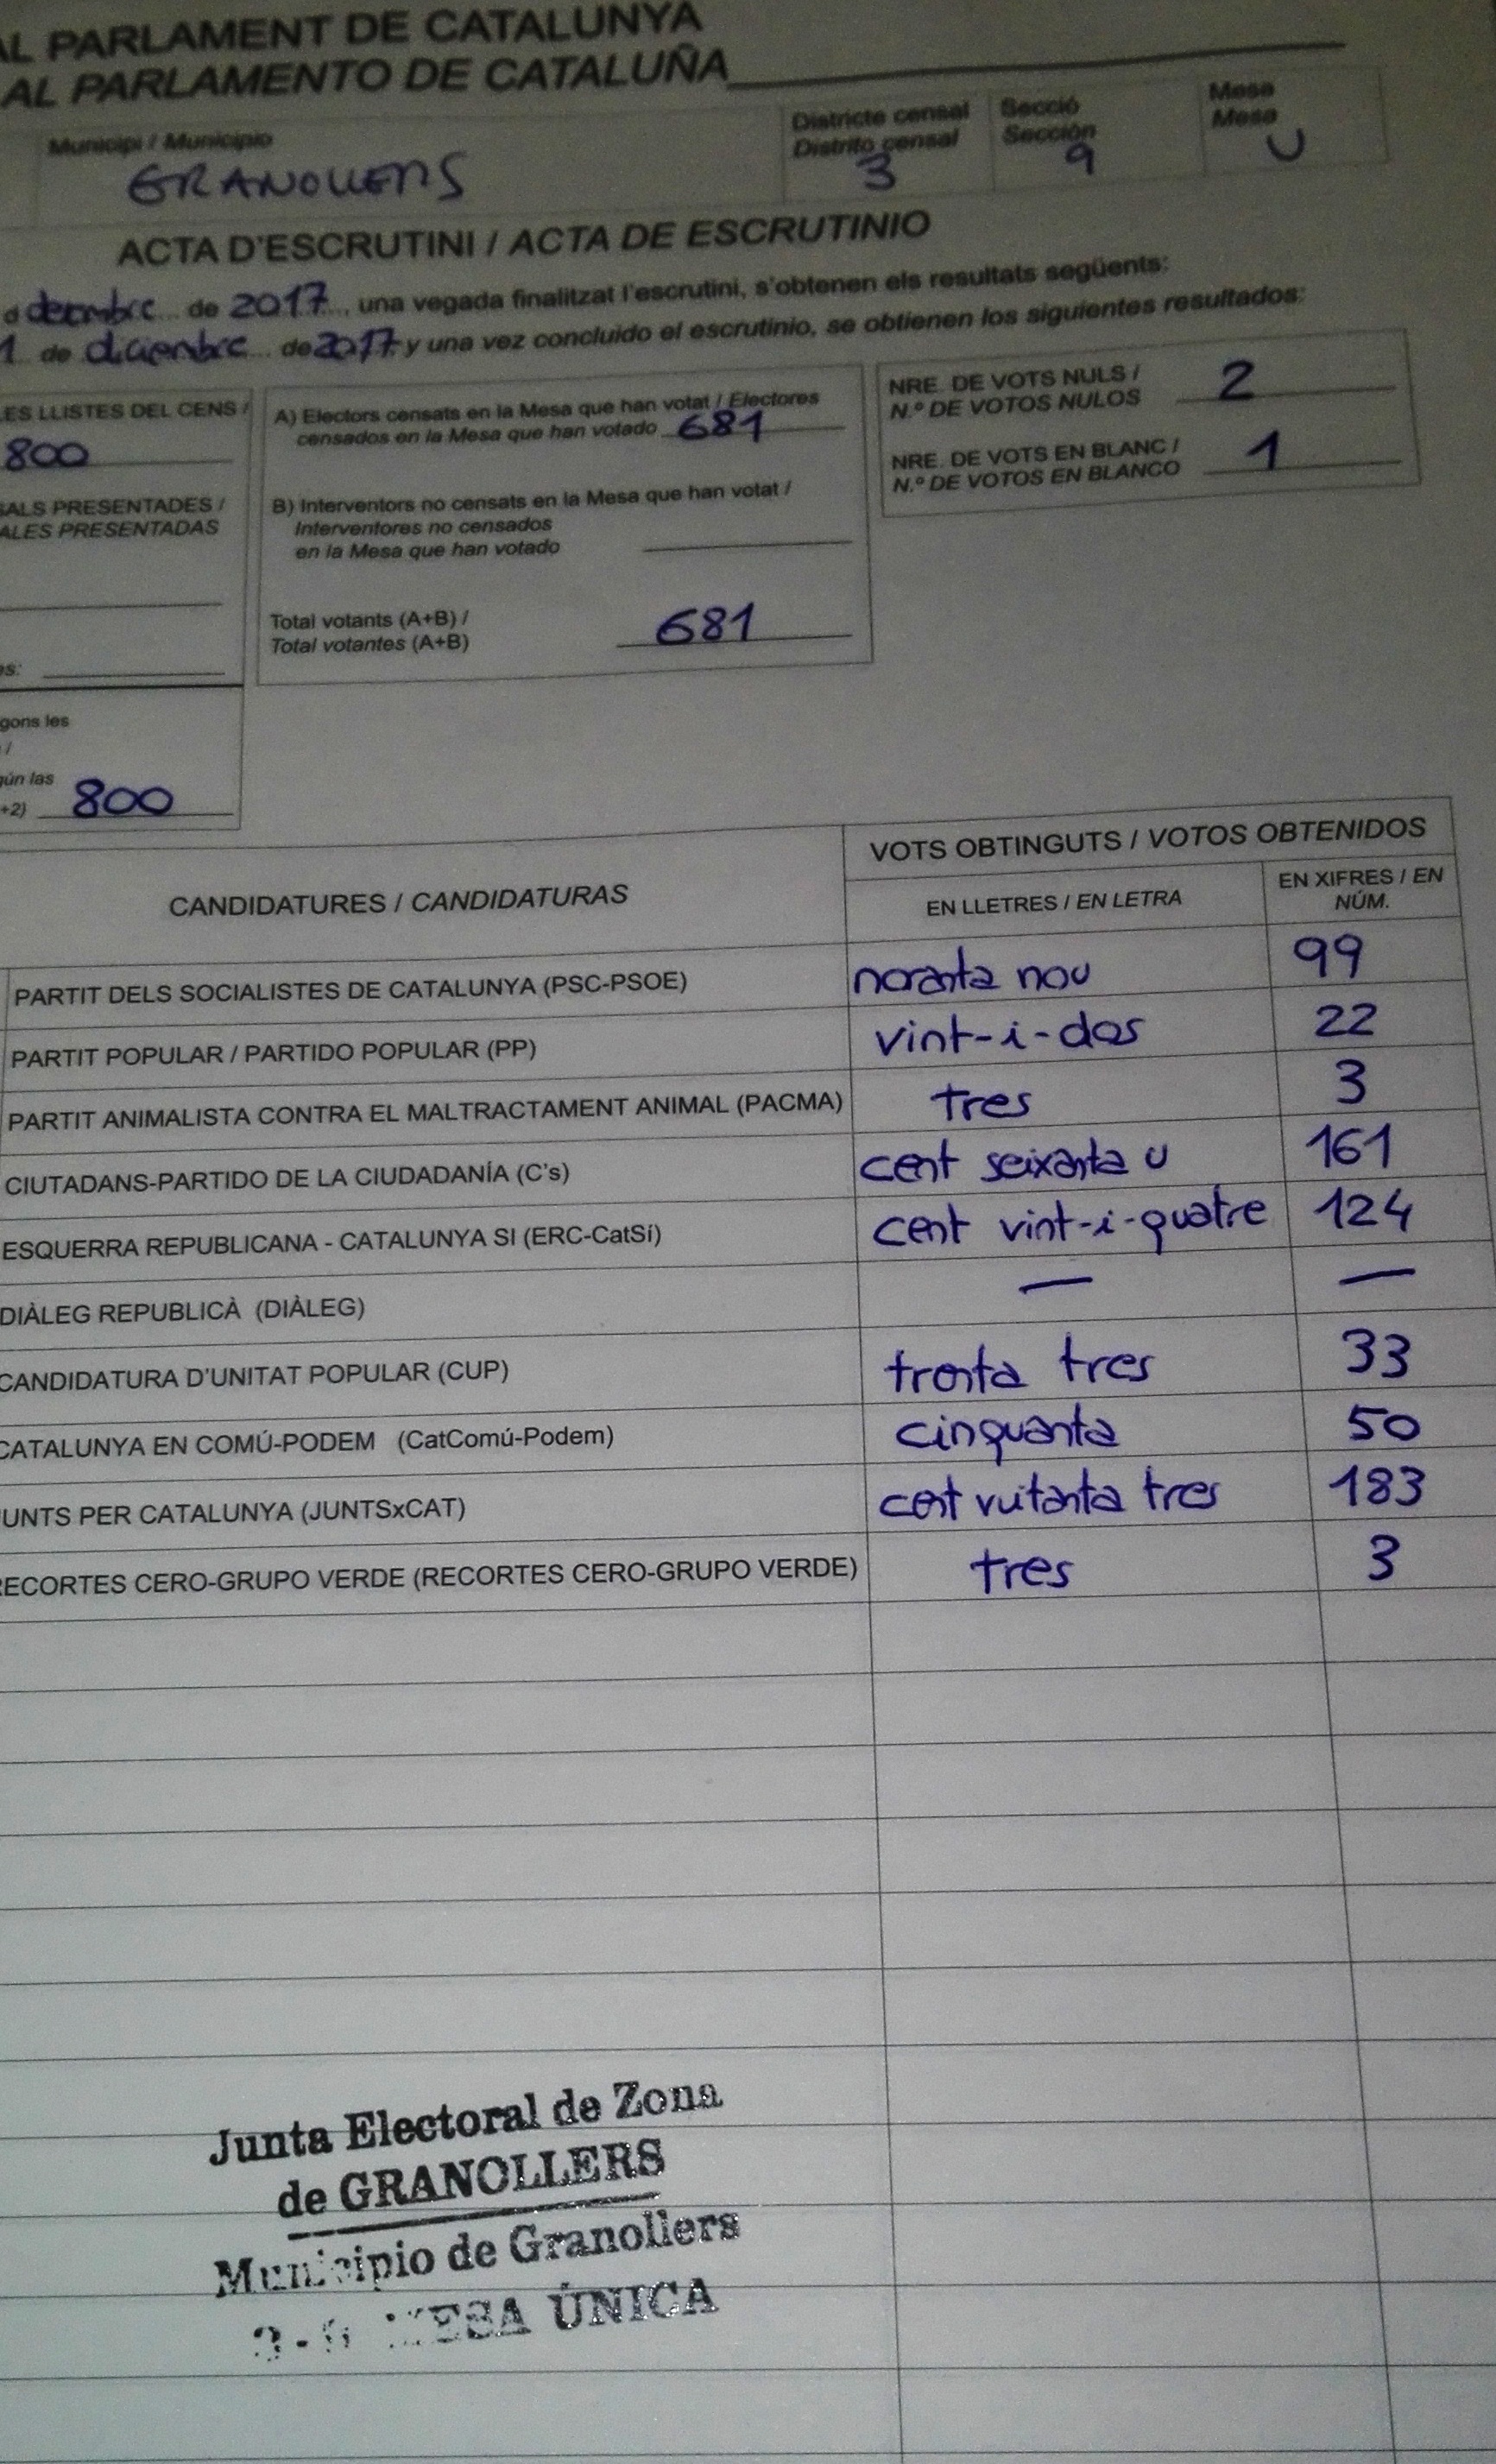 AL PARLAMENT DE CATALUNYA
AL PARLAMENTO DE CATALUÑA
Municipi / Municipio
GRANOLLERS
Districte censal
Distrito censal
3
Secció
Sección
9
Mesa
Mesa
U
ACTA D'ESCRUTINI / ACTA DE ESCRUTINIO
de 2017, una vegada finalitzat l'escrutini, s'obtenen els resultats següents:
1 de diciembre de 2017 y una vez concluido el escrutinio, se obtienen los siguientes resultados:
LES LLISTES DEL CENS /
800
ALES PRESENTADAS
s:
gons les
/
ún las
+2) 800
A) Electors censats en la Mesa que han votat / Electores
censados en la Mesa que han votado 681
B) Interventors no censats en la Mesa que han votat /
Interventores no censados
en la Mesa que han votado
Total votants (A+B) /
Total votantes (A+B) 681
NRE. DE VOTS NULS /
N.º DE VOTOS NULOS 2
NRE. DE VOTS EN BLANC /
N.º DE VOTOS EN BLANCO 1
CANDIDATURES / CANDIDATURAS
VOTS OBTINGUTS / VOTOS OBTENIDOS
EN LLETRES / EN LETRA
EN XIFRES / EN
NÚM.
PARTIT DELS SOCIALISTES DE CATALUNYA (PSC-PSOE) noranta nou 99
PARTIT POPULAR / PARTIDO POPULAR (PP) vint-i-dos 22
PARTIT ANIMALISTA CONTRA EL MALTRACTAMENT ANIMAL (PACMA) tres 3
CIUTADANS-PARTIDO DE LA CIUDADANÍA (C's) cent seixanta u 161
ESQUERRA REPUBLICANA - CATALUNYA SI (ERC-CatSí) cent vint-i-quatre 124
DIÀLEG REPUBLICÀ (DIÀLEG) — —
CANDIDATURA D'UNITAT POPULAR (CUP) trenta tres 33
CATALUNYA EN COMÚ-PODEM (CatComú-Podem) cinquanta 50
UNTS PER CATALUNYA (JUNTSxCAT) cent vuitanta tres 183
RECORTES CERO-GRUPO VERDE (RECORTES CERO-GRUPO VERDE) tres 3
Junta Electoral de Zona
de GRANOLLERS
Municipio de Granollers
MESA ÚNICA